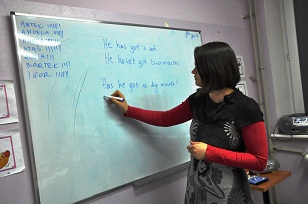 ANTEK !!!!!
ANIELA !!!!!
BARTEK !!!!
IGOR !!!!!
He has got a cat.
He hasn't got two mouths.
Has he got a big mouth?